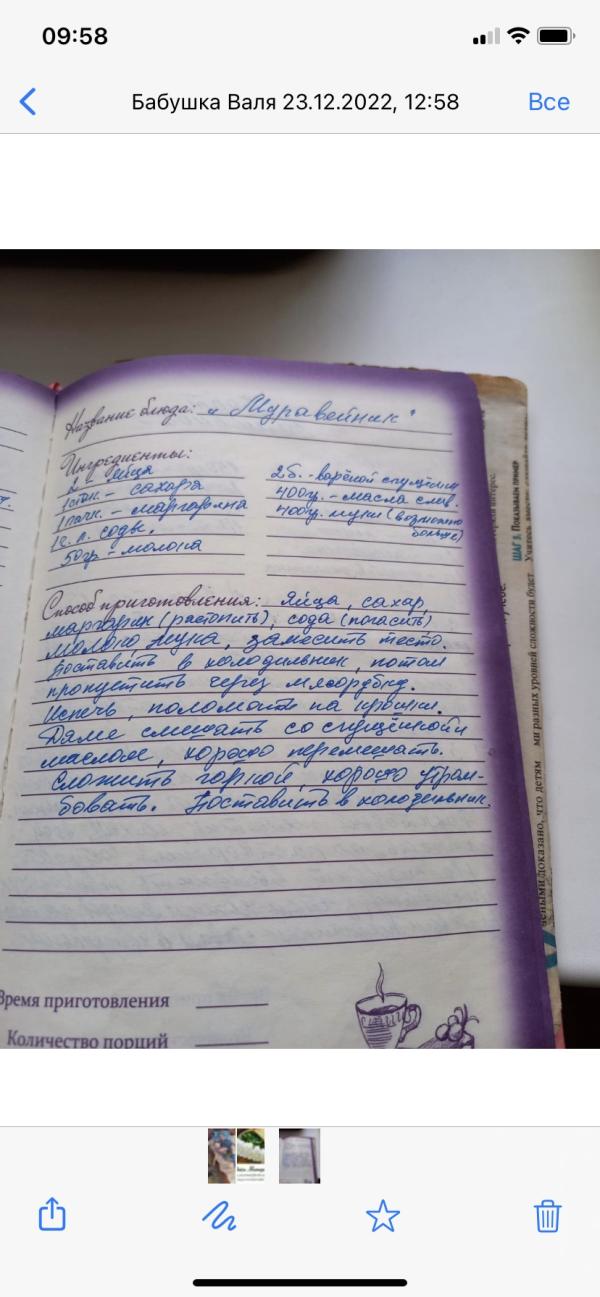 09:58
Бабушка Валя 23.12.2022, 12:58
Все
Название блюда: „Муравейник"
Ингредиенты:
2 яйца
1 стак. - сахара
1 пачк. - маргарина
1 ч. л. соды.
50гр - молока
2б. - варёной сгущёнки
400гр. - масла слив.
400гр. муки (возможно
больше)
Способ приготовления: Яйца, сахар,
маргарин (растопить), сода (погасить)
молоко, мука, замесить тесто.
Поставить в холодильник, потом
пропустить через мясорубку.
Испечь, поломать на крошки.
Далее смешать со сгущёнкой
маслом, хорошо перемешать.
Сложить горкой, хорошо утрам-
бовать. Поставить в холодильник.
Время приготовления
Количество порций
ШАГ 3. Показываем пример
ми разных уровней сложности будет
доказано, что детям